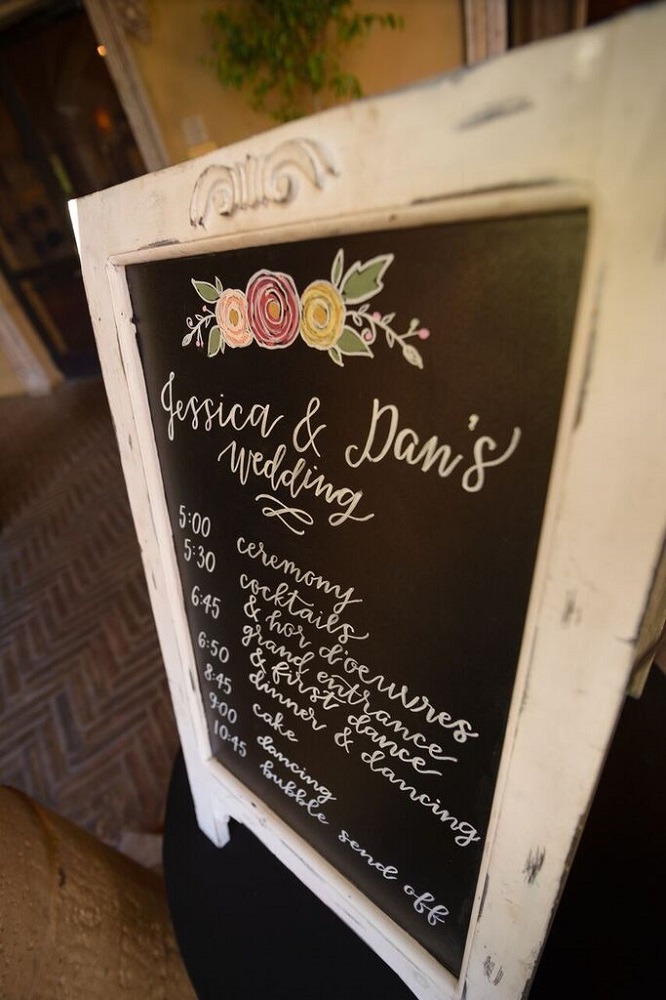 Jessica & Dan's
Wedding
5:00 ceremony
5:30 cocktails
& hor d'oeuvres
6:45 grand entrance
& first dance
6:50 dinner & dancing
8:45 cake
9:00 dancing
10:45 bubble send off